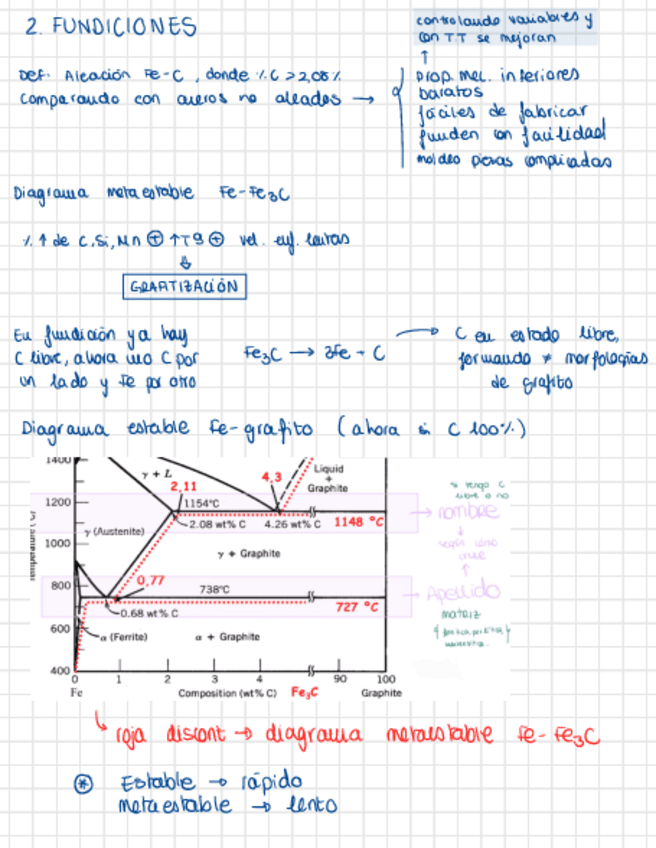 2. FUNDICIONES
controlando variables y
con TT se mejoran
↑
Def. Aleación Fe-C, donde %C > 2,08%
comparando con aceros no aleados →
prop. mec. inferiores
baratos
fáciles de fabricar
funden con facilidad
moldeo piezas complicadas
Diagrama metaestable Fe-Fe₃C
% ↑ de C, Si, Mn ⊕ ↑Tª ⊕ vel. enf. lentas
⇓
GRAFITIZACIÓN
En fundición ya hay
C libre, ahora uno C por
un lado y Fe por otro
Fe₃C → 3Fe + C
→ C en estado libre,
formando ≠ morfologías
de grafito
Diagrama estable Fe-grafito (ahora si C 100%)
1400
γ + L
2,11
4,3
Liquid
+
Graphite
1200
1154°C
2.08 wt% C
4.26 wt% C
1148 °C
γ (Austenite)
1000
γ + Graphite
800
0,77
738°C
727 °C
0.68 wt% C
600
α (Ferrite)
α + Graphite
400
0 1 2 3 4 90 100
Fe
Composition (wt% C)
Fe₃C
Graphite
si tengo C
libre o no
→ nombre
↓
según cómo
↑
→ Apellido
matriz
↳ roja discont → diagrama metaestable Fe-Fe₃C
⊛ Estable → rápido
metaestable → lento